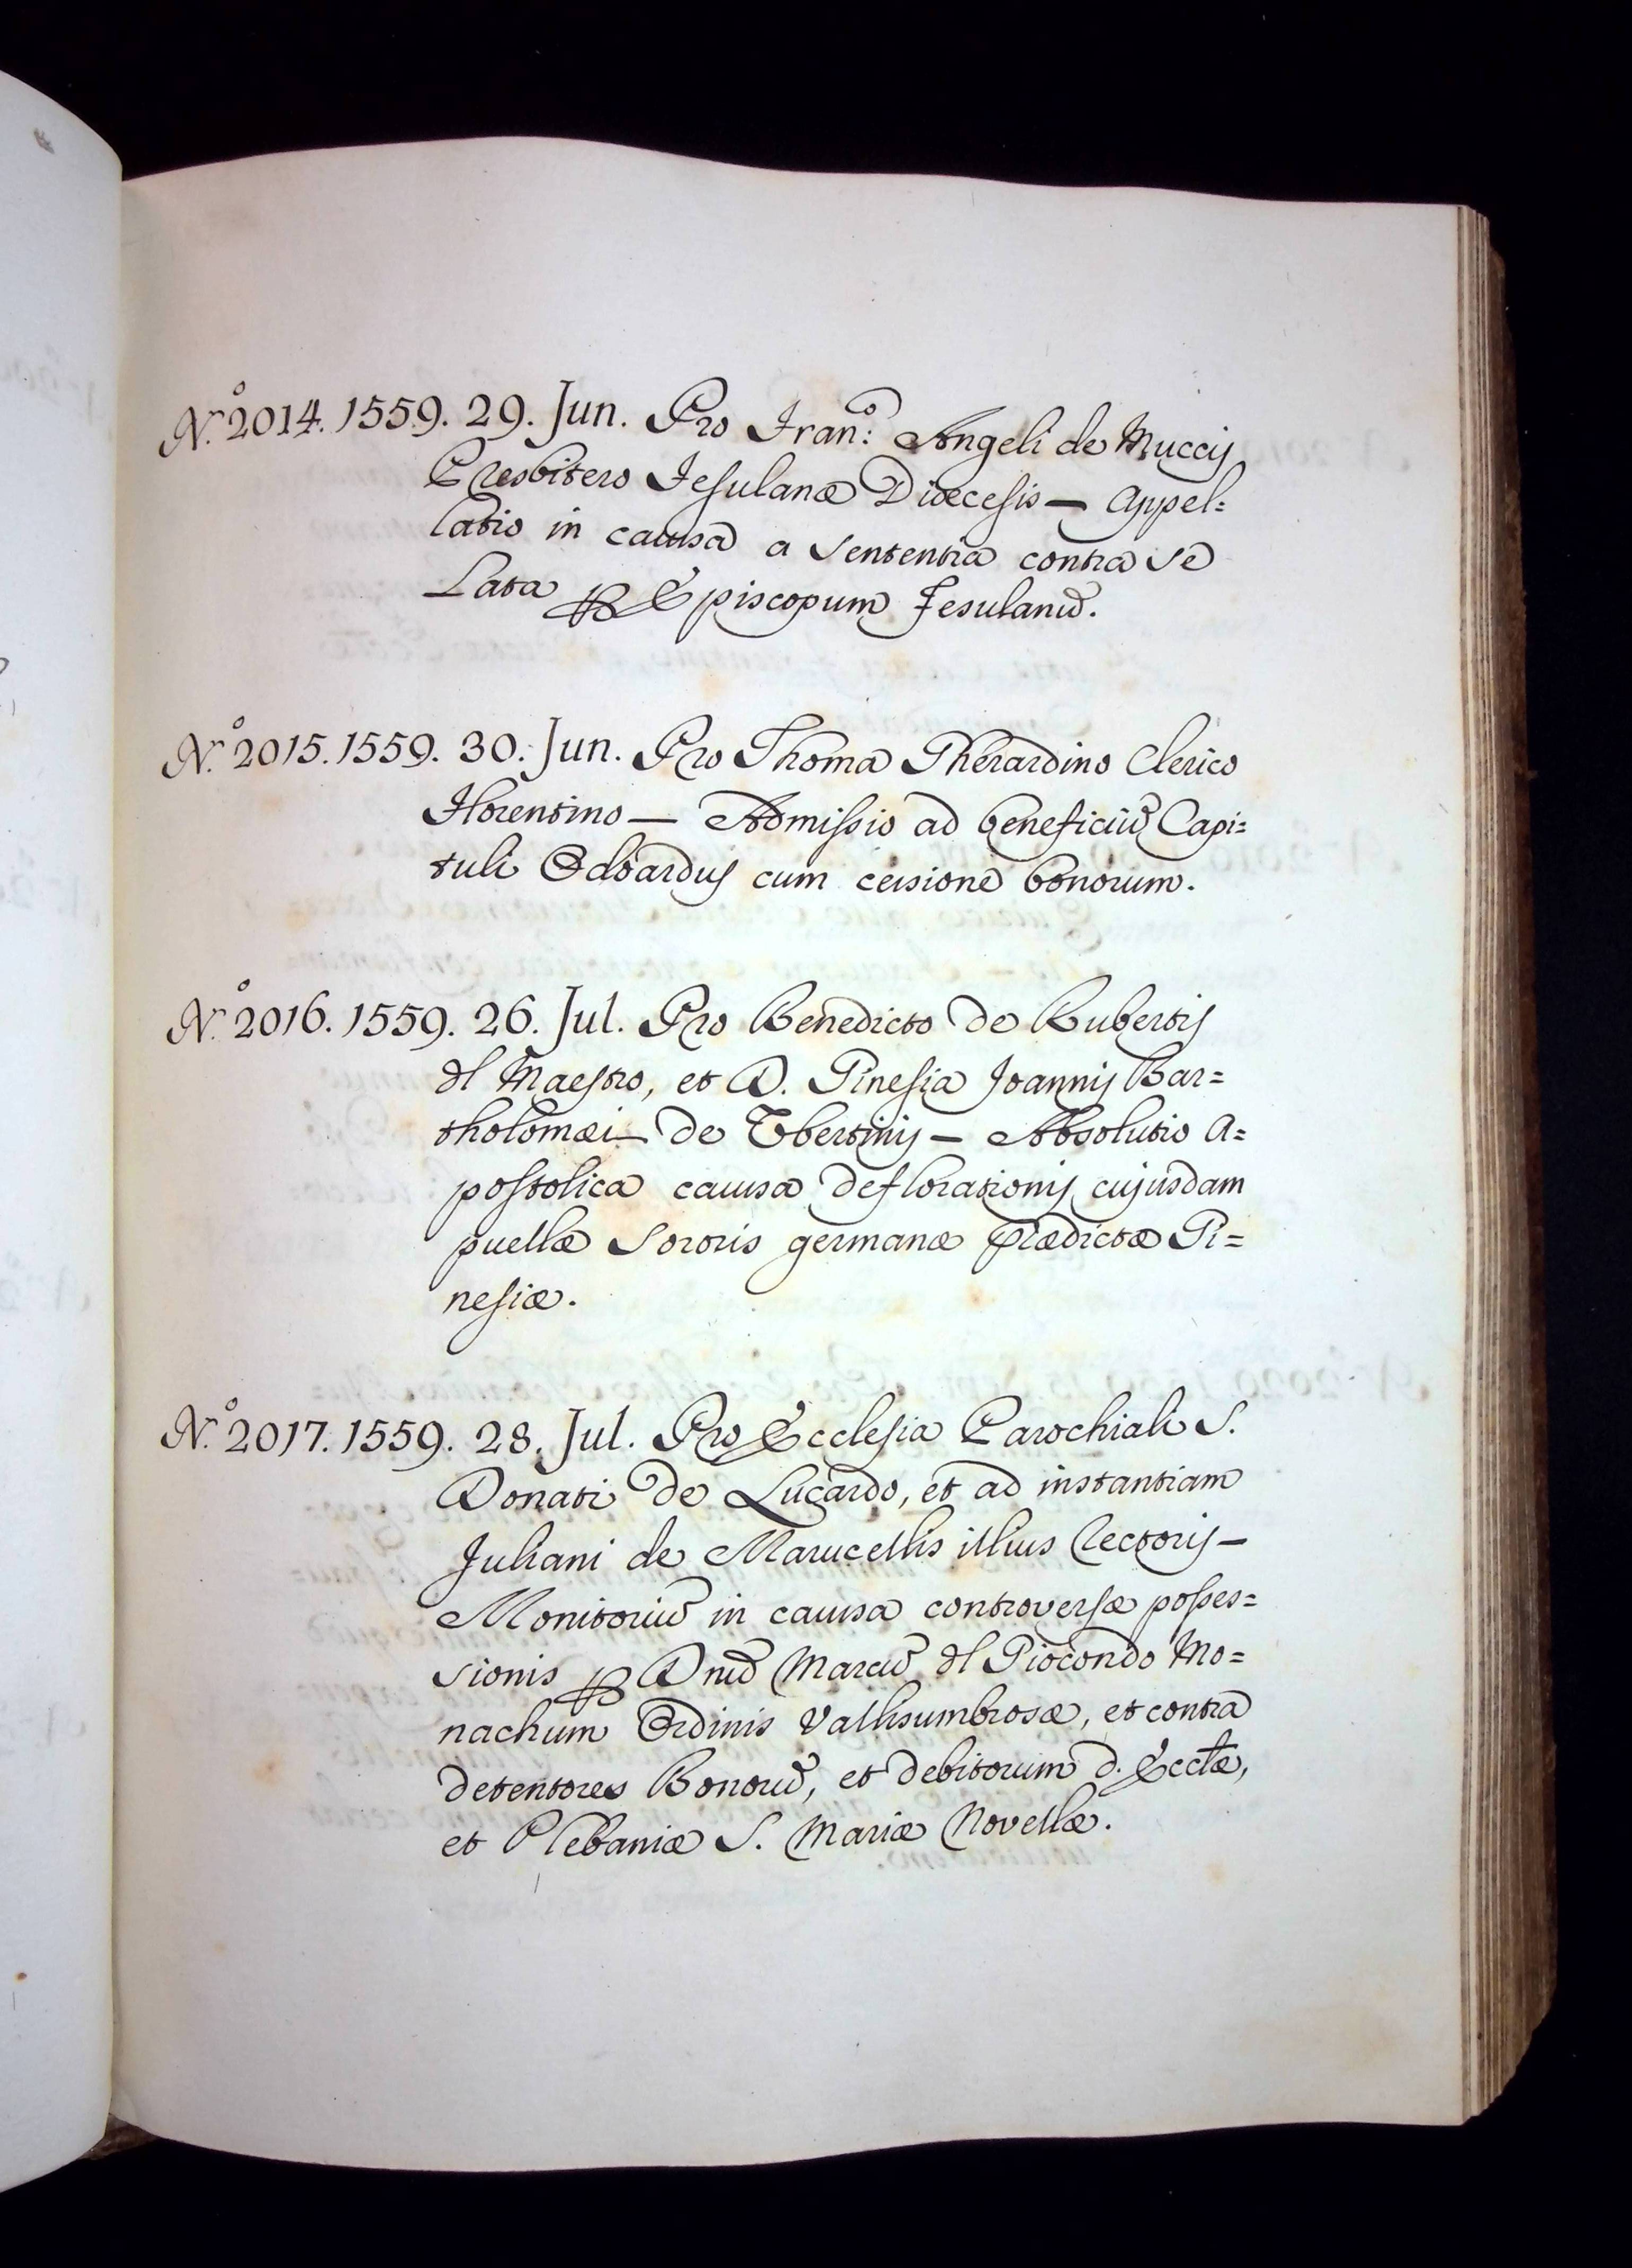 N.º 2014. 1559. 29. Jun. Pro Fran:º Angeli de Muccij
Presbitero Fesulanæ Diœcesis — Appel=
latio in causa a sententia contra se
Lata p Episcopum Fesulanũ.
N.º 2015. 1559. 30. Jun. Pro Thoma Gherardino Clerico
Florentino — Admissio ad beneficiũ Capi=
tuli Edoardus cum cessione bonorum.
N.º 2016. 1559. 26. Jul. Pro Benedicto de Rubertis
dl Maestro, et D. Ginesia Joannis Bar=
tholomæi de Ubertinis — Absolutio A=
postolica causa deflorationis cujusdam
puellæ sororis germanæ prædictæ Gi=
nesiæ.
N.º 2017. 1559. 28. Jul. Pro Ecclesia Parochiali S.
Donati de Lucardo, et ad instantiam
Juliani de Marucellis illius Rectoris —
Monitoriũ in causa controversæ posses=
sionis p Dnũ Marcũ dl Giocondo Mo=
nachum Ordinis Vallisumbrosæ, et contra
detentores Bonorũ, et debitorum d. Ecclæ,
et Plebaniæ S. Mariæ Novellæ.